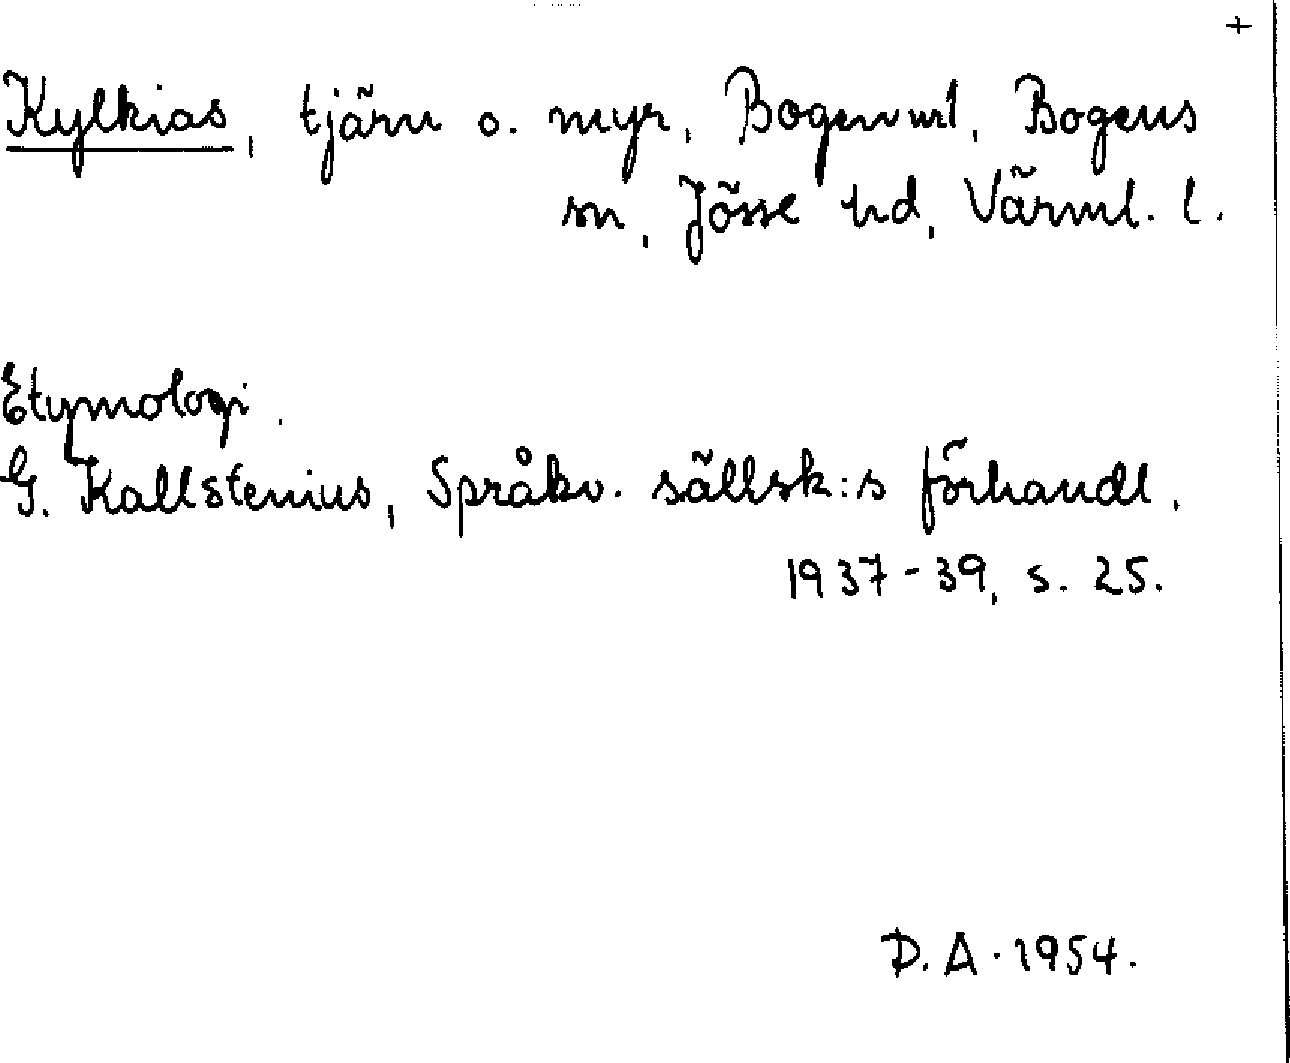 +
Kylkias, tjärn o. myr, Bogen Bogens
sn, Jösse hd, Värml. l.
Etymologi.
G. Kallstenius, Språkv. sällsk:s förhandl.
1937-39, s. 25.
D. A. 1954.